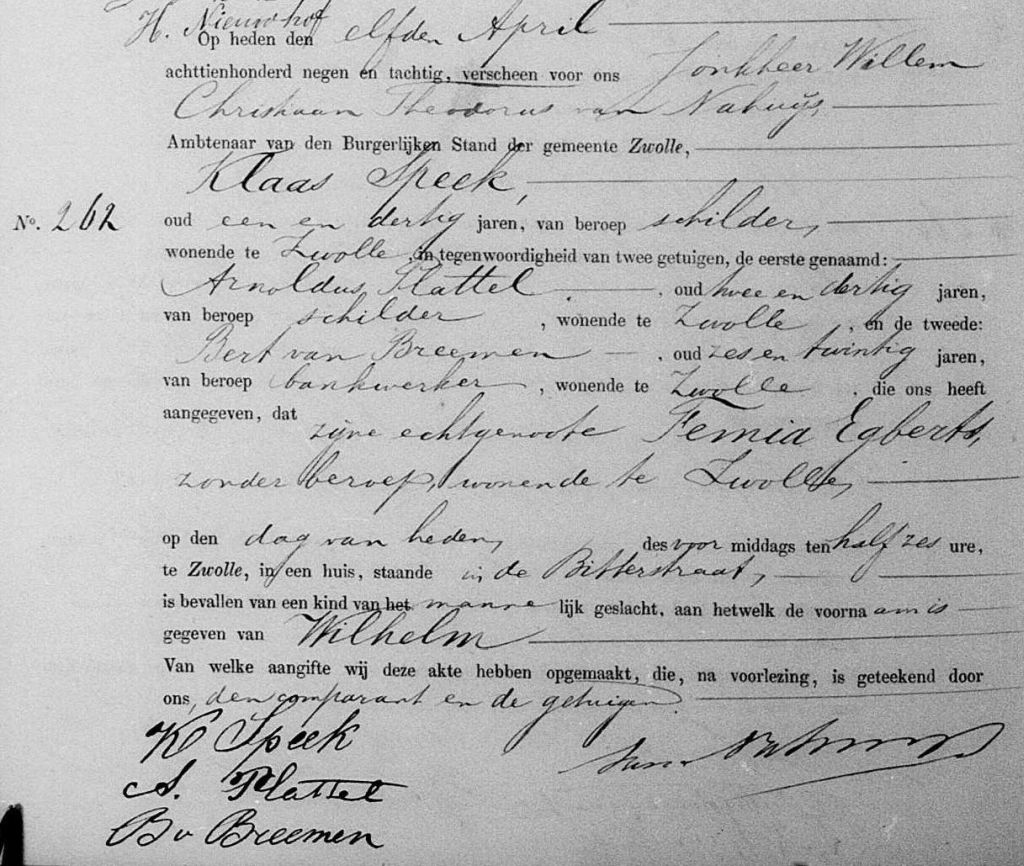 H. Nieuwhof
Op heden den elfden April
achttienhonderd negen en tachtig, verscheen voor ons Jonkheer Willem
Christiaan Theodorus van Nahuijs,
Ambtenaar van den Burgerlijken Stand der gemeente Zwolle,
Klaas Speek,
No. 262
oud een en dertig jaren, van beroep schilder,
wonende te Zwolle, in tegenwoordigheid van twee getuigen, de eerste genaamd:
Arnoldus Plattel, oud twee en dertig jaren,
van beroep schilder, wonende te Zwolle, en de tweede:
Bert van Breemen, oud zes en twintig jaren,
van beroep bankwerker, wonende te Zwolle, die ons heeft
aangegeven, dat zijne echtgenoote Femia Egberts,
zonder beroep, wonende te Zwolle,
op den dag van heden, des voor middags ten half zes ure,
te Zwolle, in een huis, staande in de Bitterstraat,
is bevallen van een kind van het manne lijk geslacht, aan hetwelk de voorna am is
gegeven van Wilhelm
Van welke aangifte wij deze akte hebben opgemaakt, die, na voorlezing, is geteekend door
ons, den comparant en de getuigen.
K Speek
A. Plattel
B v Breemen